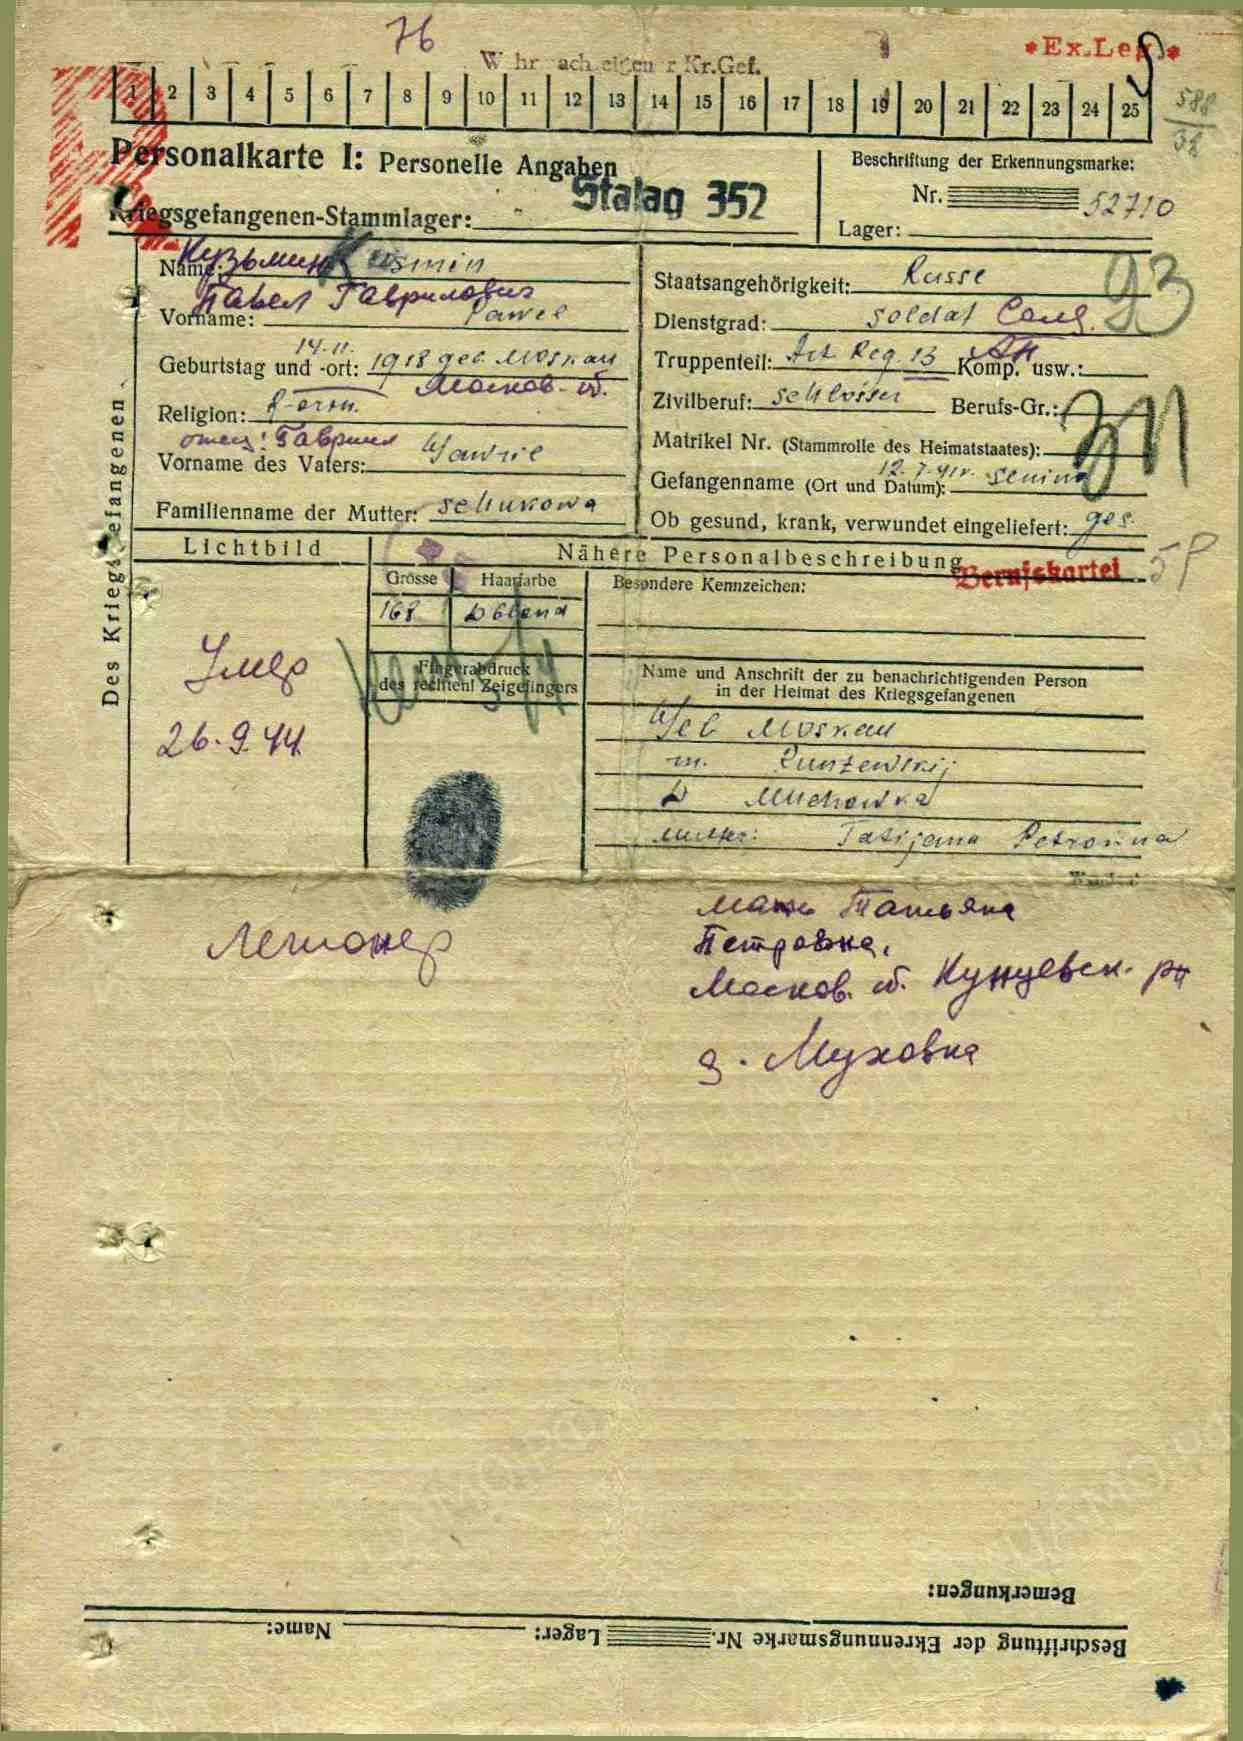 76
Kr.Gef.
*Ex.Leg.*
1 2 3 4 5 6 7 8 9 10 11 12 13 14 15 16 17 18 19 20 21 22 23 24 25
588
38
Personalkarte I: Personelle Angaben
Kriegsgefangenen-Stammlager: Stalag 352
Beschriftung der Erkennungsmarke:
Nr. 52710
Lager:
Des Kriegsgefangenen
Кузьмин
Name: Kusmin
Павел Гаврилович
Vorname: Pawel
14.11.
Geburtstag und -ort: 1918 geb. Moskau
Москов. об.
Religion:
отец: Гавриил
Vorname des Vaters: Gawril
Familienname der Mutter: Schukowa
Staatsangehörigkeit: Russe
93
Dienstgrad: Soldat Солд.
Truppenteil: Art Reg. 13 АП Komp. usw.:
Zivilberuf: Schlosser Berufs-Gr.:
Matrikel Nr. (Stammrolle des Heimatstaates):
12. 7. 41
Gefangenname (Ort und Datum):
Ob gesund, krank, verwundet eingeliefert: ges.
Lichtbild
Nähere Personalbeschreibung
Berufskartei
Grösse Haarfarbe
168 Dblond
Besondere Kennzeichen:
Fingerabdruck
des rechten! Zeigefingers
Умер
26.9.44
Name und Anschrift der zu benachrichtigenden Person
in der Heimat des Kriegsgefangenen
Geb Moskau
Kunzewskij
D Muchowka
Tatijana Petrowna
Легионер
мать Татьяна
Петровна,
Москов. об. Кунцевск. рн
д. Муховка
Bemerkungen:
Beschriftung der Erkennungsmarke Nr. Lager: Name: